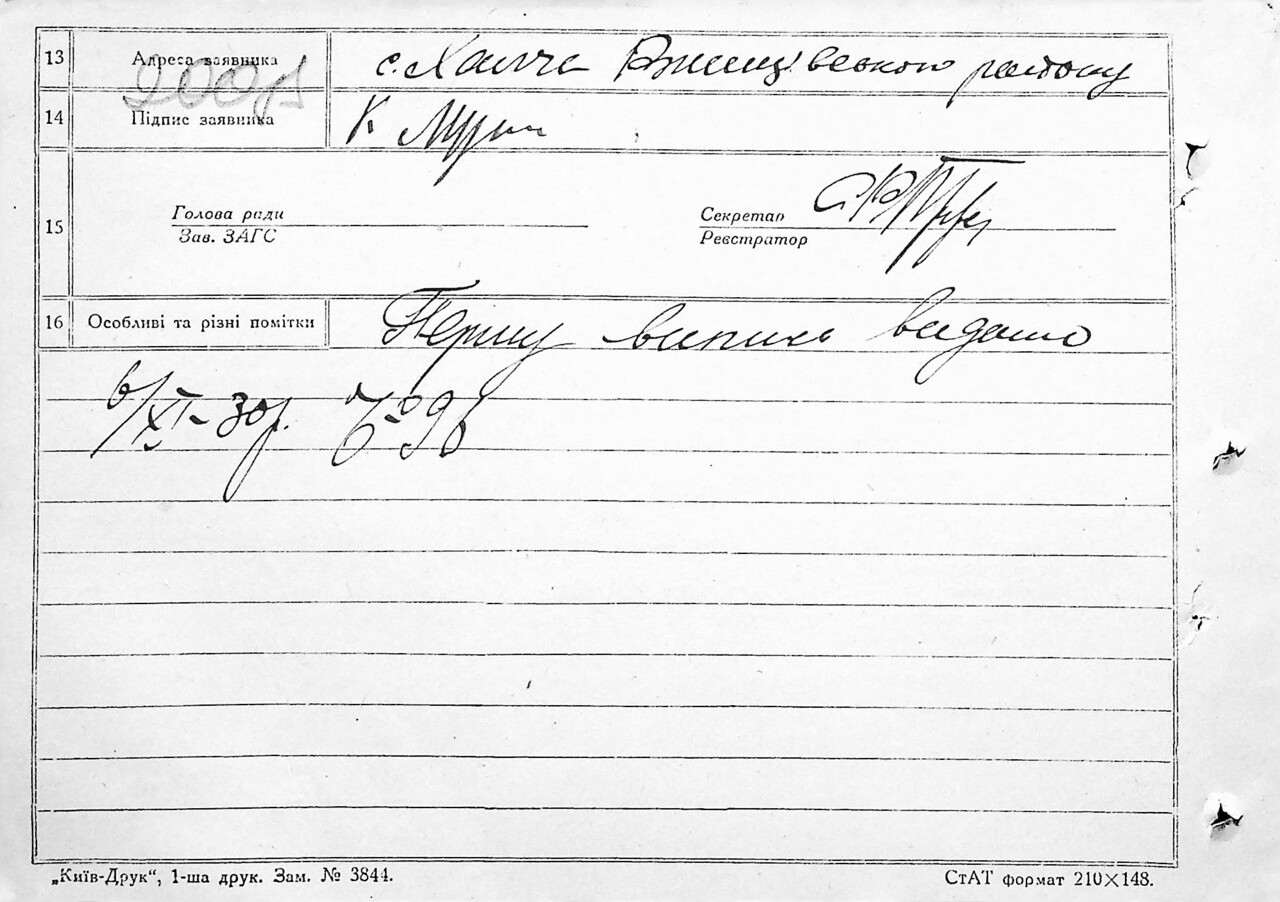 13 Адреса заявника с. Халча Ржищівського району
14 Підпис заявника К
15 Голова ради Секретар
Зав. ЗАГС Реєстратор
16 Особливі та різні помітки Першу випись видано
6/XI-30р. № 96
„Київ-Друк“, 1-ша друк. Зам. № 3844. СтАТ формат 210×148.